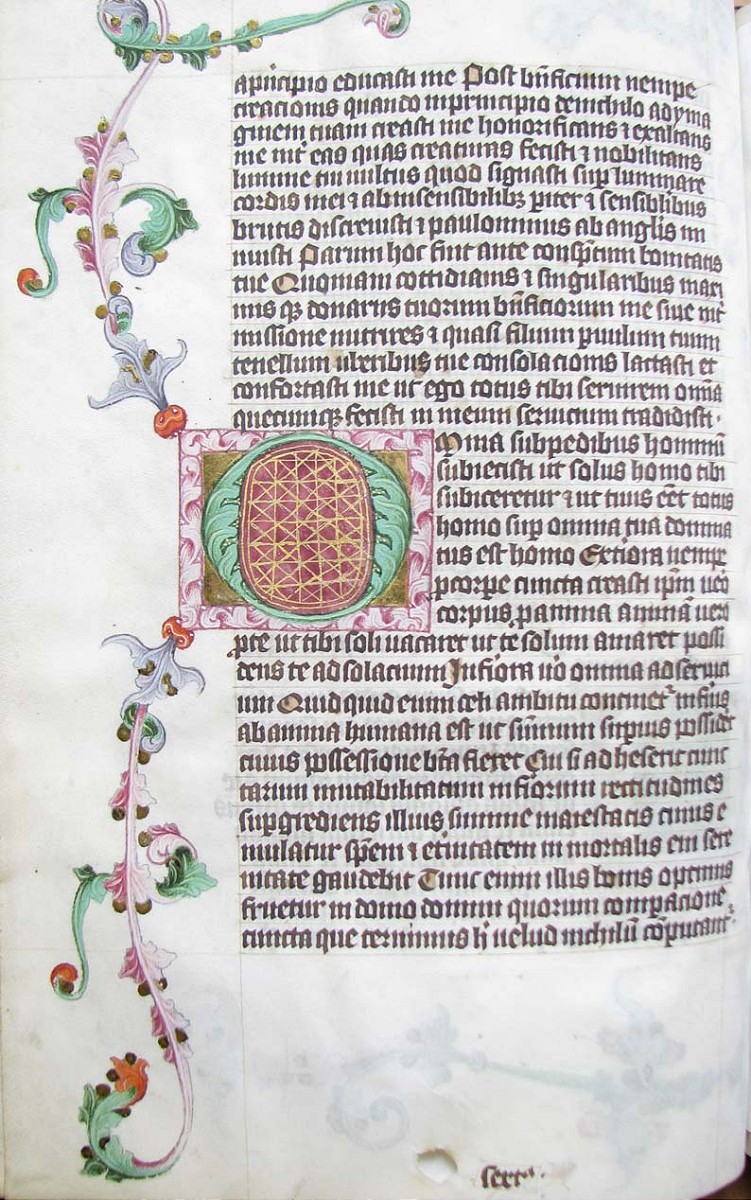 apricipio educasti me Post bn̄ficium nempe
creacionis quando inprincipio denichilo adyma
ginem tuam creasti me honorificans ⁊ exaltans
me int̄ eas quas creaturas fecisti ⁊ nobilitans
lumine tui uultus quod signasti sup luminare
cordis mei ⁊ abinsensibilibꝫ ꝑiter ⁊ sensiblibus
brutis discreuisti ⁊ paulominus ab anglis mi
nuisti Parum hoc fuit ante conspc̄tum bonitatis
tue Quoniam cottidianis ⁊ singularibus maxi
mis qꝫ donariis tuorum bn̄ficiorum me siue int̄
missione nutrires ⁊ quasi filium ꝑuulum tuum
tenellum uberibus tue consolacionis lactasti et
confortasti me ut ego totus tibi seruirem om̄ia
quecumqꝫ fecisti in meum seruicium tradidisti.
Omnia subpedibus hominū
subiecisti ut solus homo tibi
subiceretur ⁊ ut tuus eēt totus
homo sup omnia tua domina
tus est homo Extiora nempe
ꝓcorpe cuncta creasti ip̄m ueō
corpus ꝓanima animā uero
ꝓte ut tibi soli uacaret ut te solum amaret possi
dens te ad solacium Infiora ūo omnia ad serui
cium Quidquid enim celi ambitu continet̄ infius
abanima humana est ut sūmum supius possidēt
cuius possessione bt̄a fieret Cui si ad heserit cunc
tarum mutabilitatum infiorum rectitudines
supgrediens illius summe maiestatis cuius e
mulatur spēm ⁊ et̄nitatem in mortalis eui sere
nitate gaudebit Tunc enim illis bonis optimis
fruetur in domo domini quorum compacione
cuncta que cernimus h̄ uelud nichilū cōputant̄.
sexta.